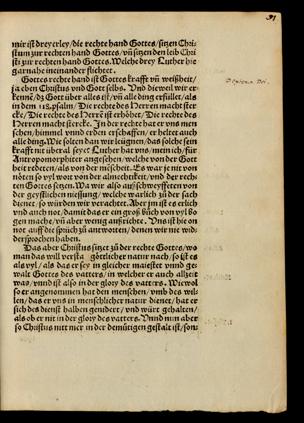 91
mir ist dreyerley/ die rechte hand Gottes/ sitzen Chri-
stum zur rechten hand Gottes/ vñ sitzen den leib Chri
sti zur rechten hand Gottes. Welche drey Luther hie
gar nahe in einander flichtet.
Gottes rechte hand ist Gottes krafft vñ weißheit/
ja eben Christus vnd Gott selbs. Vnd die wil wir er-
kennẽ/ dz Gott über alles ist/ vñ alle ding erfüllet/ als
in dem 118. psalm/ Die rechte des Herren macht ster
cke. Die rechte des Herrẽ ist erhöhet/ Die rechte des
Herren macht stercke. In der rechte hat er vns men
schen/ himmel vnnd erden erschaffen/ er heltet auch
alle ding. Wie solten dan wir leügnen/ das solche sein
krafft nit überal seye? Luther hat vns/ mein ich/ für
Antropomorphiter angesehen/ welche von der Gott
heit redeten/ als von der mẽscheit. Es war je nit von
nöten so vyl wort von der almechtikeit/ vnd der rech
ten Gottes sitzen. Wa wir also außschweyffeten von
der
würden wir verachtet. Aber jm ist es erlich
vnd auch not/ damit das er ein groß bůch von vyl bo
gen mache/ vñ aber wenig außrichte. Vns ist hie on
not auff die sprüch zů antworten/ denen wir nie wid
dersprochen haben.
Das aber Christus sitzet zů der rechte Gottes/ wo
man das will göttlicher natur nach/ so ist es
als vyl/ als das er sey in gleicher maiestet vnnd ge-
walt Gottes des vatters/ in welcher er auch allzeit
was/ vnnd ist also in der glory des vatters. Wie wol
so er angenommen hat den menschen/ vmb des wil-
len/ das er vns in menschlicher natur dienet/ hat er
sich des dienst halben genidert/ vnd würt gehalten/
als ob er nit in der glory des vatters. Vnnd nun aber
so Christus nitt mer in der demütigen gestalt ist/ son-